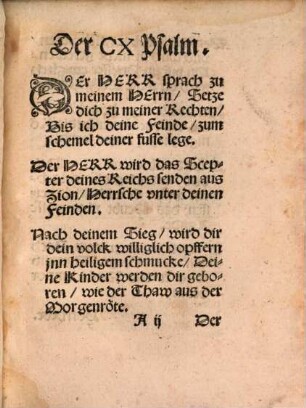 Der CX Psalm.
DEr HERR sprach zu
meinem HErrn / Setze
dich zu meiner Rechten /
Bis ich deine Feinde / zum
schemel deiner fusse lege.
Der HERR wird das Scep-
ter deines Reichs senden aus
Zion / Herrsche vnter deinen
Feinden.
Nach deinem Sieg / wird dir
dein volck williglich opffern
jnn heiligem schmucke / Dei-
ne Kinder werden dir gebo-
ren / wie der Thaw aus der
Morgenröte.
A ij Der